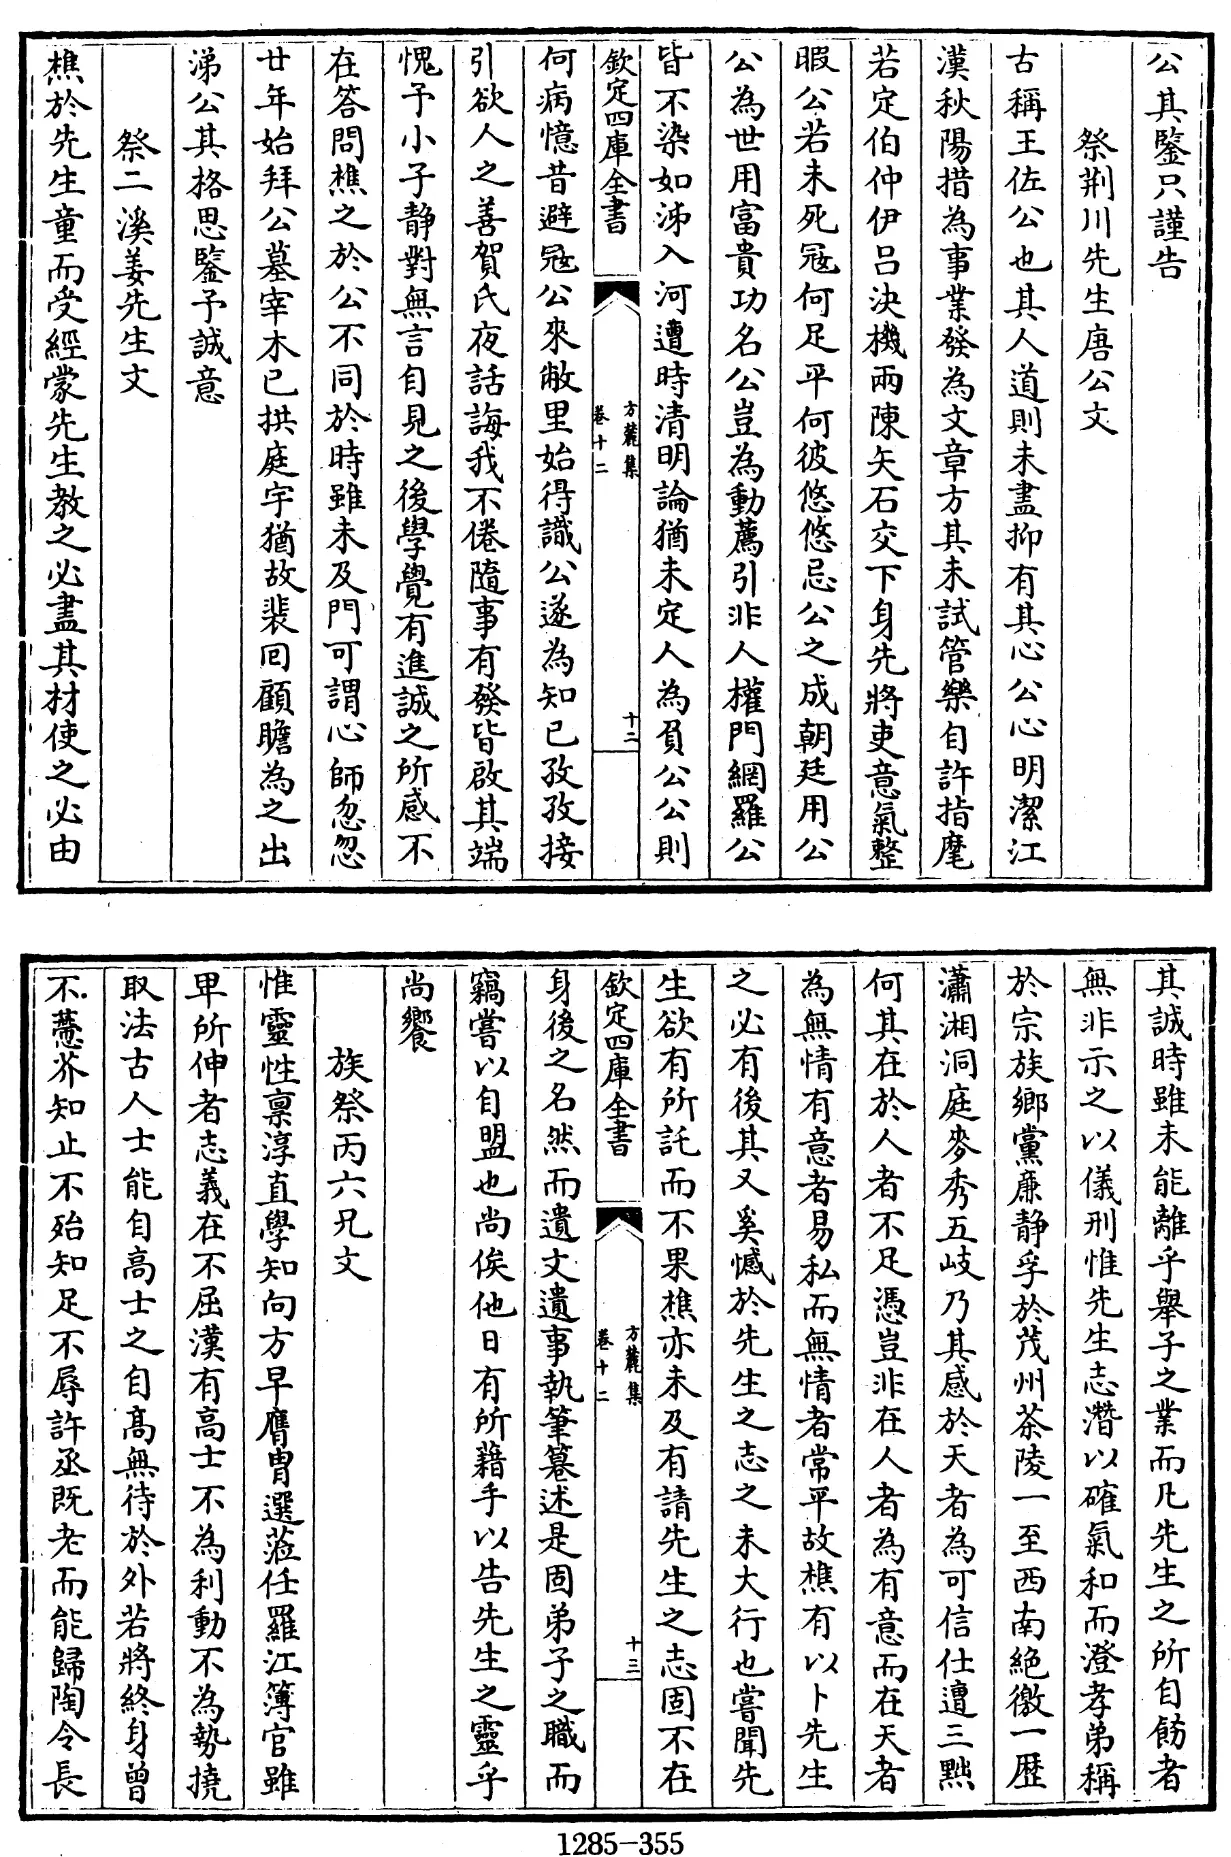 公其鑒只謹告
祭荆川先生唐公文
古稱王佐公也其人道則未盡抑有其心公心明潔江
漢秋陽措為事業發為文章方其未試管樂自許指麾
若定伯仲伊呂決機兩陳矢石交下身先將吏意氣整
暇公若未死冦何足平何彼悠悠忌公之成朝廷用公
公為世用富貴功名公豈為動薦引非人權門網羅公
皆不染如沸入河遭時清明論猶未定人為負公公則
欽定四庫全書
方麓集
卷十二
十二
何病憶昔避冦公來敝里始得識公遂為知己孜孜接
引欲人之善賀氏夜話誨我不倦隨事有發皆啟其端
愧予小子静對無言自見之後學覺有進誠之所感不
在答問樵之於公不同於時雖未及門可謂心師忽忽
廿年始拜公墓宰木已拱庭宇猶故裴回顧瞻為之出
涕公其格思鑒予誠意
祭二溪姜先生文
樵於先生童而受經蒙先生教之必盡其材使之必由
其誠時雖未能離乎舉子之業而凡先生之所自飭者
無非示之以儀刑惟先生志潛以確氣和而澄孝弟稱
於宗族鄉黨廉静孚於茂州茶陵一至西南絶徼一歴
瀟湘洞庭麥秀五岐乃其感於天者為可信仕遭三黜
何其在於人者不足憑豈非在人者為有意而在天者
為無情有意者易私而無情者常平故樵有以卜先生
之必有後其又奚憾於先生之志之未大行也嘗聞先
生欲有所託而不果樵亦未及有請先生之志固不在
欽定四庫全書
方麓集
卷十二
十三
身後之名然而遺文遺事執筆篹述是固弟子之職而
竊嘗以自盟也尚俟他日有所藉手以告先生之靈乎
尚饗
族祭丙六兄文
惟靈性禀淳直學知向方早膺胄選蒞任羅江簿官雖
卑所伸者志義在不屈漢有高士不為利動不為勢撓
取法古人士能自高士之自髙無待於外若將終身曾
不蔕芥知止不殆知足不辱許丞既老而能歸陶令長
1285-355